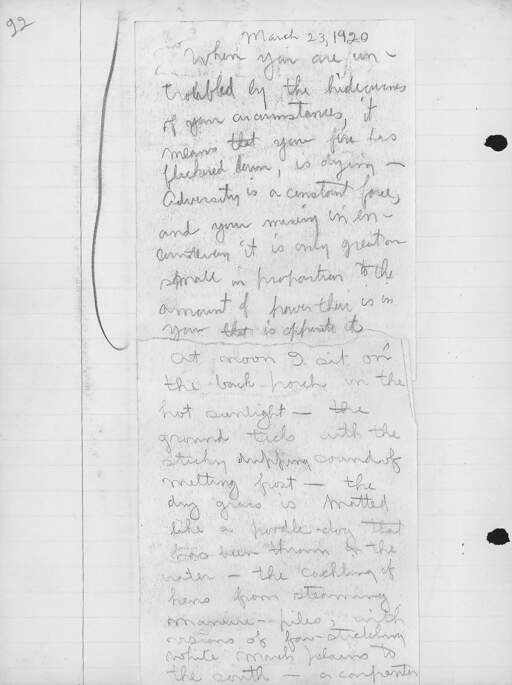 92
March 23, 1920
When you are un-
troubled by the hideousness
of your circumstances, it
means that your fire has
flickered down, is dying —
Adversity is a constant force,
and your misery in en-
countering it is only great or
small in proportion to the
amount of power there is in
you that is opposite it
At noon I sit on
the back porch in the
hot sunlight — the
ground ticks with the
sticky dripping sound of
melting frost — the
dry grass is matted
like a poodle-dog that
has been thrown in the
water — the cackling of
hens from steaming
manure-piles, with
visions of far-stretching
white marsh plains to
the south — a carpenter